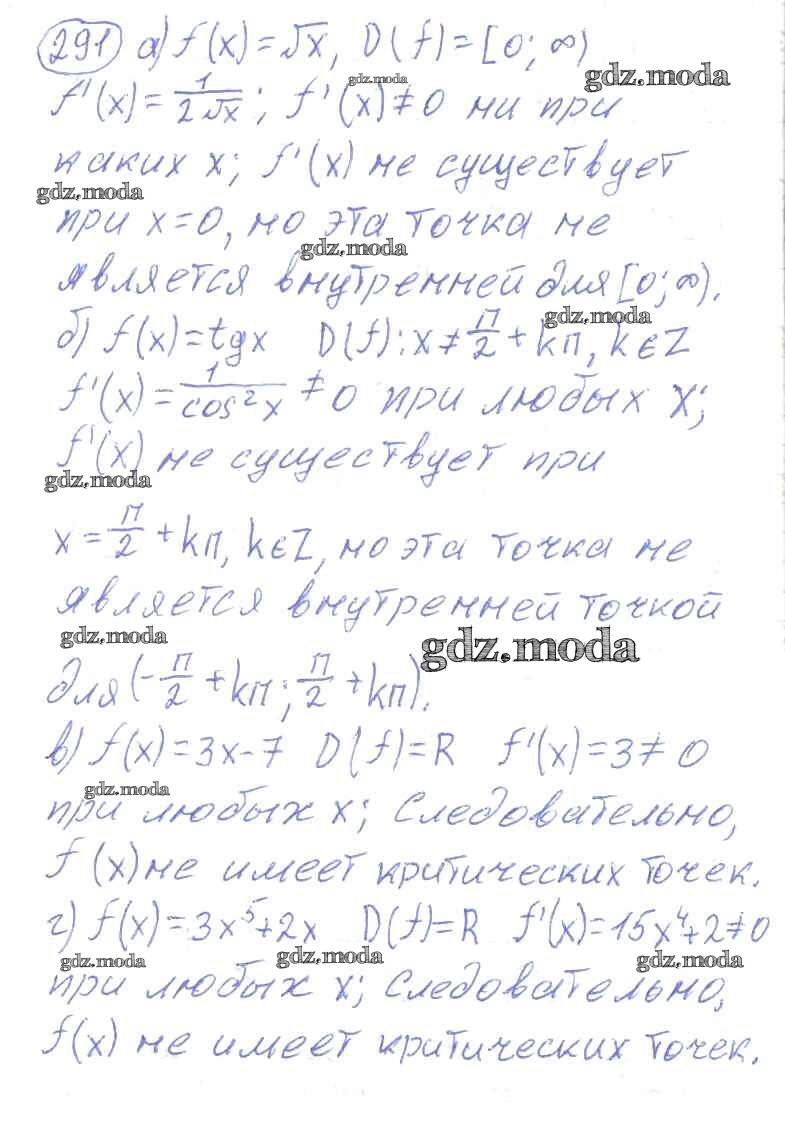 291 а) f(x)=√x, D(f)=[0; ∞)
gdz.moda
gdz.moda
f'(x)=1/(2√x); f'(x)≠0 ни при
каких x; f'(x) не существует
gdz.moda
при x=0, но эта точка не
gdz.moda
является внутренней для [0; ∞).
gdz.moda
б) f(x)=tgx D(f): x≠π/2+kπ, k∈Z
f'(x)=1/cos²x ≠0 при любых x;
f'(x) не существует при
gdz.moda
x=π/2+kπ, k∈Z, но эта точка не
является внутренней точкой
gdz.moda
gdz.moda
для (-π/2+kπ; π/2+kπ).
в) f(x)=3x-7 D(f)=R f'(x)=3≠0
gdz.moda
при любых x; Следовательно,
f(x) не имеет критических точек.
г) f(x)=3x⁵+2x D(f)=R f'(x)=15x⁴+2≠0
gdz.moda
gdz.moda
gdz.moda
при любых x; Следовательно,
f(x) не имеет критических точек.